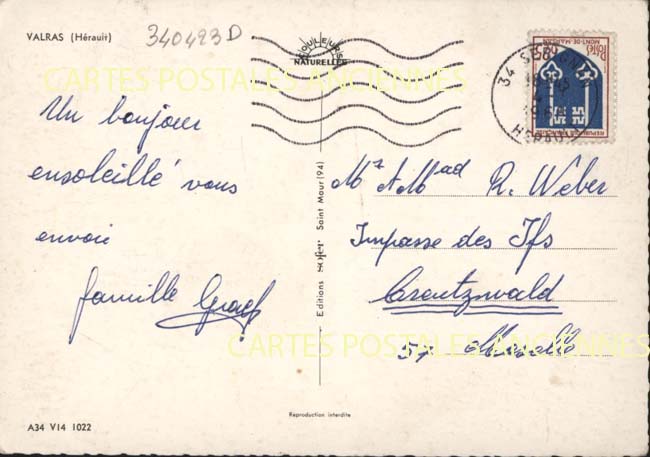 VALRAS (Hérault)
340493D
COULEURS
NATURELLES
CARTES POSTALES ANCIENNES
34
HERAULT
MONT-DE-MARSAN
REPUBLIQUE FRANÇAISE
Un bonjour
ensoleillé vous
envoie
famille
Mr & Mad R. Weber
Impasse des Ifs
Creutzwald
57 Moselle
Editions SOFER Saint Maur (94)
CARTES POSTALES ANCIENNES
Reproduction interdite
A34 V14 1022